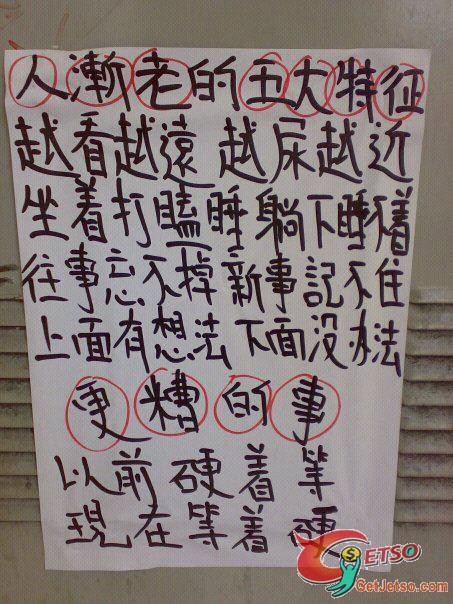 人漸老的五大特征
越看越遠 越尿越近
坐着打瞌睡 躺下睡不着
往事忘不掉 新事記不住
上面有想法 下面没办法
更糟的事
以前硬着等
現在等着硬
GETSO
GetJetso.com